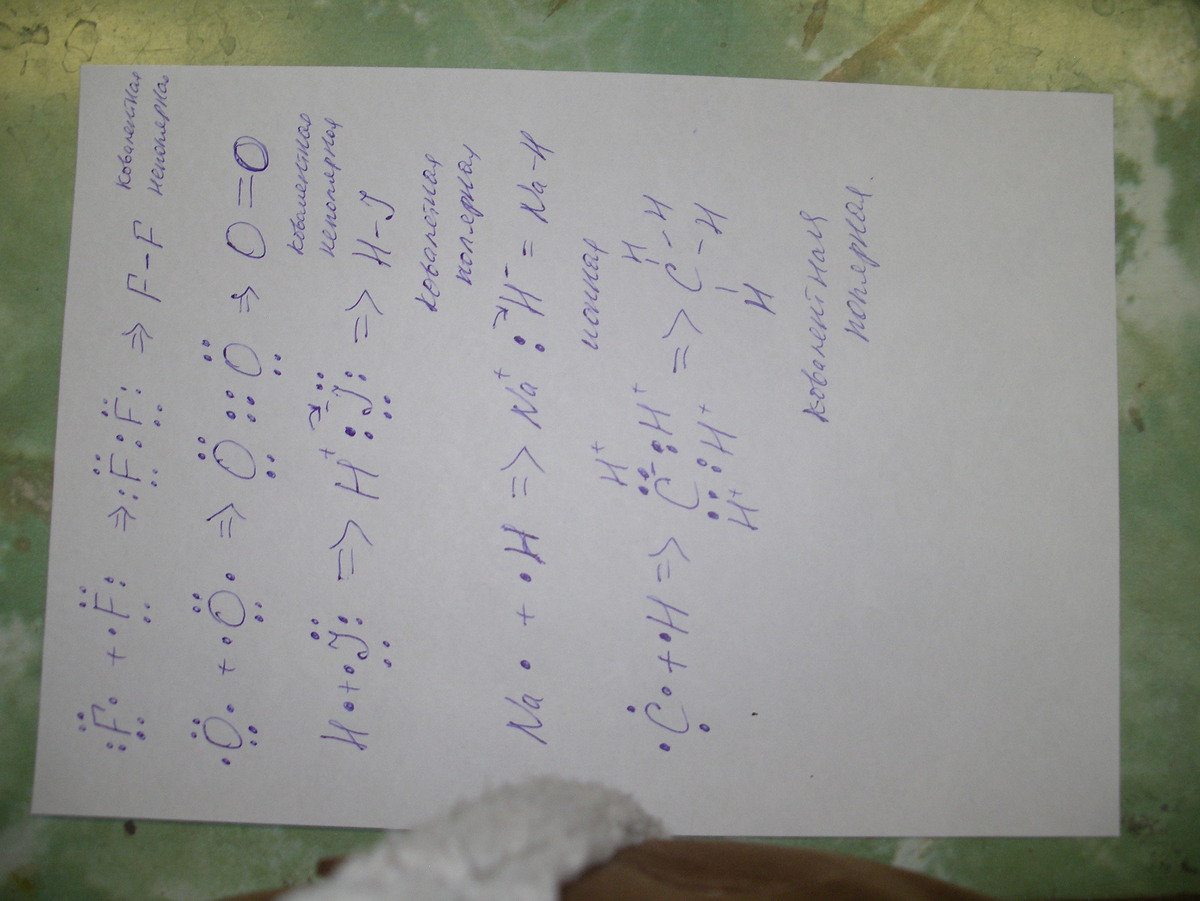 :F· + ·F: ⇒ :F:F: ⇒ F–F ковалентная
неполярная
·O· + ·O· ⇒ O::O ⇒ O=O
ковалентная
неполярная
H· + ·J: => H⁺:J⁻: => H–J
ковалетная
полярная
Na· + ·H => Na⁺:H⁻ = Na–H
ионная
H⁺ H
·C· + ·H => C⁻:H⁺ => C–H
H⁺ :H⁺ H –H
ковалентная
полярная.